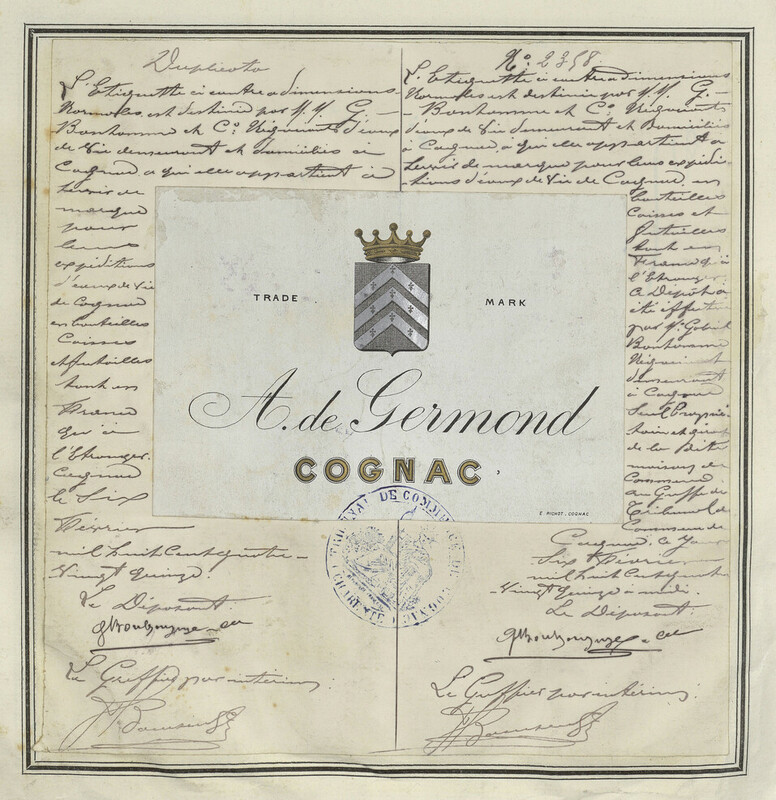 Duplicata
L'Etiquette ci contre a dimensions
Normales est destinée par M.M. G.
Bonhomme et Cº. Négociants d'eaux
de Vie demeurant et domiciliés à
Cognac à qui elle appartient à
servir de
marque
pour
leurs
expéditions
d'eaux de Vie
de Cognac
en bouteilles
Caisses
et futailles
tant en
France
qu'à
l'Etranger.
Cognac
le Six
Février
mil huit cent quatre-
Vingt quinze.
Le Déposant.
Le Greffier par intérim
Nº. 2358.
L'Etiquette ci contre a dimensions
Normales est destinée par M.M. G.
Bonhomme et Cº. Négociants
d'eaux de Vie demeurant et domiciliés
à Cognac, à qui elle appartient à
servir de marque pour leurs expédi-
tions d'eaux de Vie de Cognac en
bouteilles
Caisses et
futailles
tant en
France qu'à
l'Etranger.
Ce Dépôt a
été effectué
par Mr. Gabriel
Bonhomme
Négociant
demeurant
à Cognac
Seul Propprié-
taire et gérant
de la dite
maison de
Commerce
au Greffe du
Tribunal de
Commerce de
Cognac, ce jour
Six Février
mil huit cent quatre
Vingt quinze à midi.
Le Déposant.
Le Greffier par intérim.
TRADE MARK
A. de Germond
COGNAC
E. PICHOT. COGNAC
TRIBUNAL DE COMMERCE DE COGNAC
(CHARENTE)